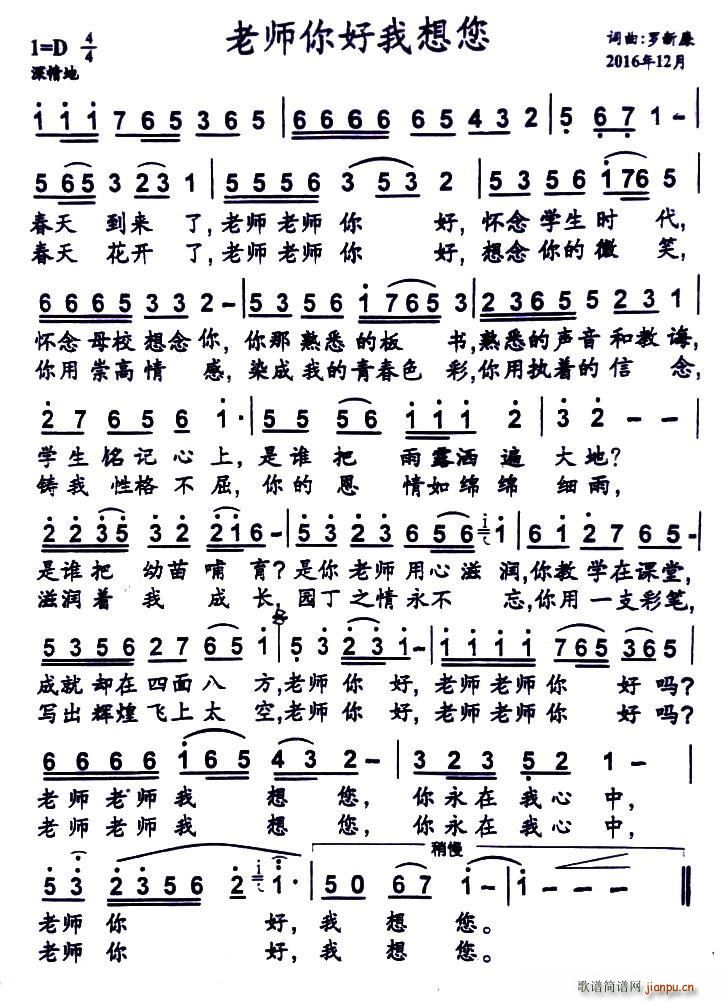 老师你好我想您
1=D 4/4
词曲:罗新康
深情地
2016年12月
1 1 1 7 6 5 3 6 5 | 6 6 6 6 6 5 4 3 2 | 5 6 7 1 - |
5 6 5 3 2 3 1 | 5 5 5 6 3 5 3 2 | 5 3 5 6 1 7 6 5 |
春天 到来 了,老师老师你 好,怀念学生时 代,
春天 花开 了,老师老师你 好,想念你的微 笑,
6 6 6 5 3 3 2 - | 5 3 5 6 1 7 6 5 3 | 2 3 6 5 5 2 3 1 |
怀念 母校 想念 你, 你那 熟悉 的板 书,熟悉的声音和教诲,
你用 崇高 情 感, 染成 我的青春色 彩,你用执着的信 念,
2 7 6 5 6 1· | 5 5 5 6 1 1 1 2 | 3 2 - - |
学生 铭记 心上, 是谁 把 雨露洒 遍 大地?
铸我 性格 不屈, 你的 恩 情如绵 绵 细雨,
2 2 3 5 3 2 2 1 6 - | 5 3 2 3 6 5 6 5 1 | 6 1 2 7 6 5 5 - |
是谁把 幼苗 哺 育?是你 老师 用心 滋 润,你教 学在课堂,
滋润着 我 成 长, 园丁 之情永不 忘,你用 一支彩笔,
5 3 5 6 2 7 6 5 1 | 5 3 2 3 1 - | 1 1 1 1 7 6 5 3 6 5 |
成就 却在 四面 八 方,老师 你 好, 老师老师你 好吗?
写出 辉煌 飞上 太 空,老师 你 好, 老师老师你 好吗?
6 6 6 6 1 6 5 4 3 2 - | 1 2 2 3 5 2 1 - |
老师 老师 我 想 您, 你永在 我心 中,
老师 老师 我 想 您, 你永在 我心 中,
稍慢
5 3 2 3 5 6 2 1 1· | 5 0 6 7 1 - | 1 - - - ‖
老师 你 好, 我 想 您。
老师 你 好, 我 想 您。
歌谱简谱网
jianpu.cn